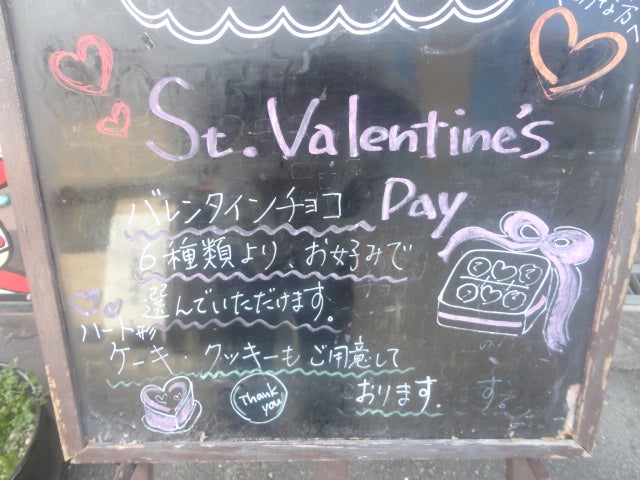 St. Valentine's
Day
バレンタインチョコ
6種類より、お好みで
選んでいただけます。
ハート形
ケーキ・クッキーもご用意して
おります。
Thank
you